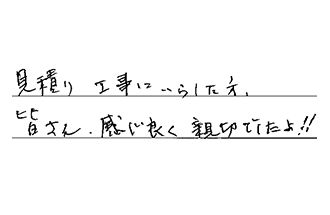 見積り 工事にいらした方、
皆さん、感じ良く 親切でしたよ!!